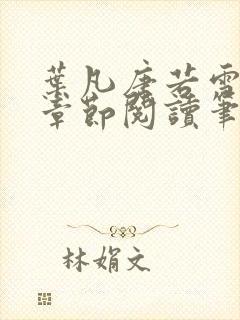 葉凡唐若雪
章節閱讀筆
林娟文